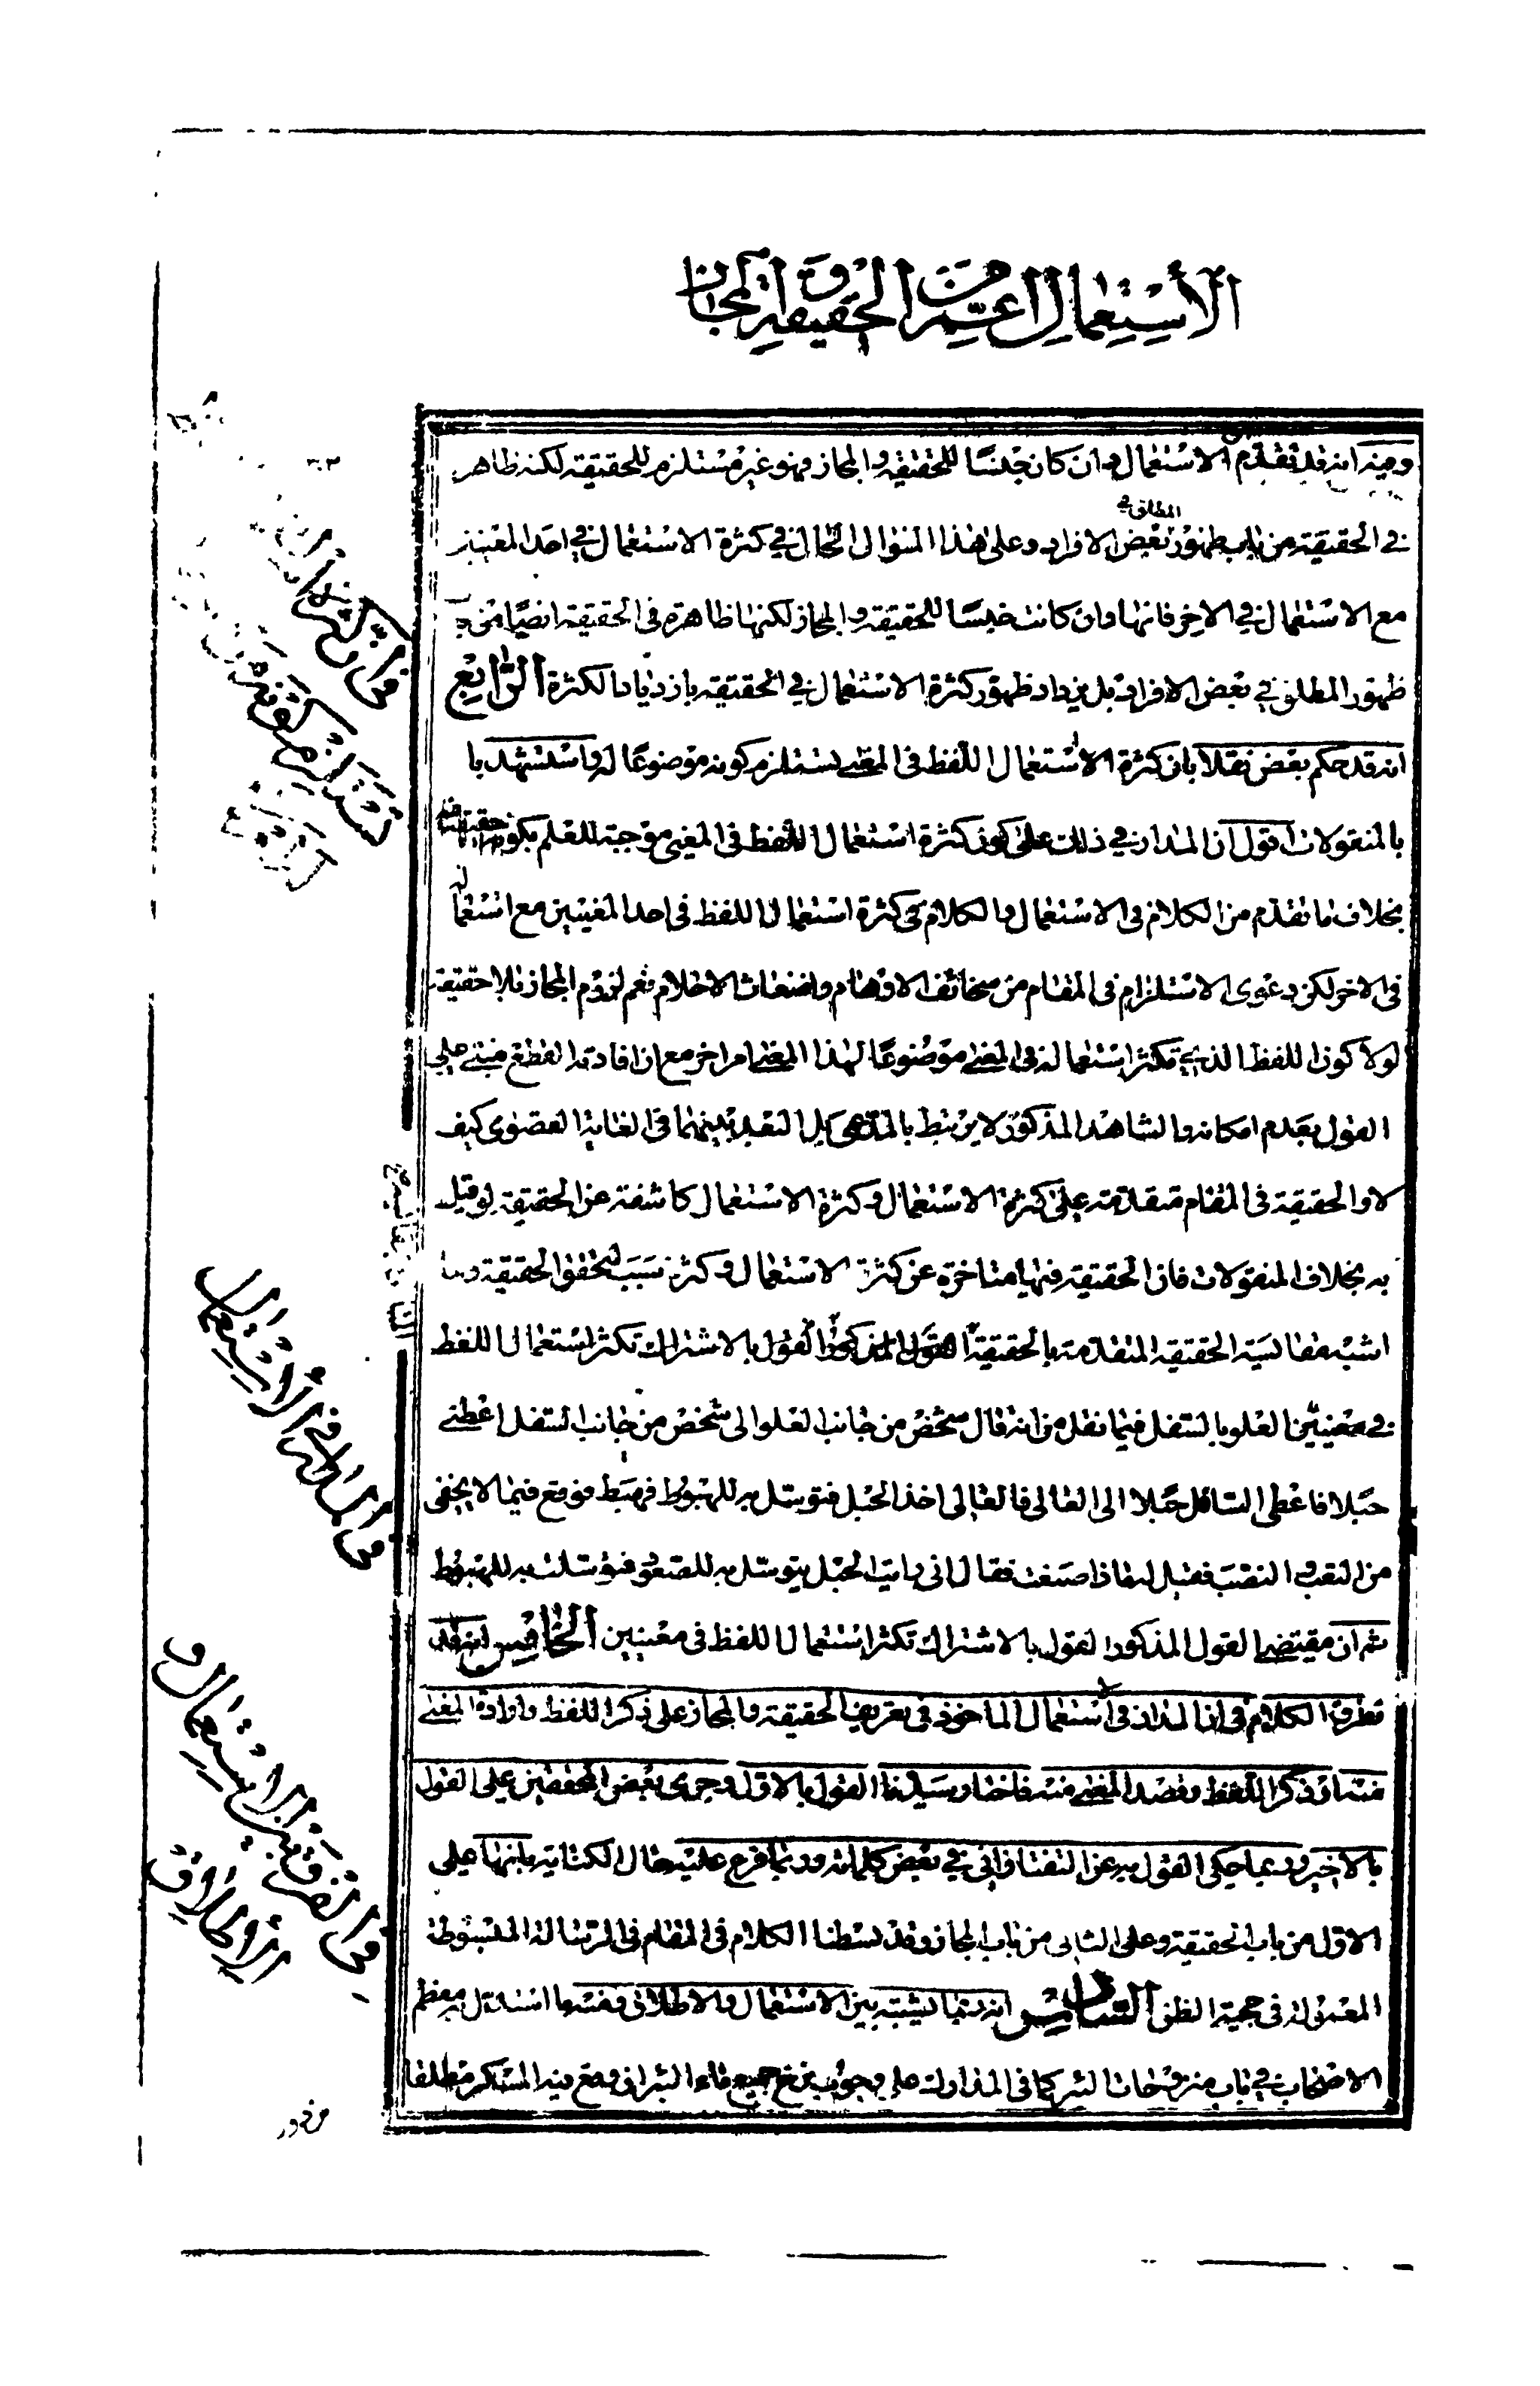 الاستعمال اعم من الحقيقة والمجاز
وفيه انه قد تقدم الاستعمال وان كان جنسا للحقيقة والمجاز فهو غير مستلزم للحقيقة لكنه ظاهر
في الحقيقة من باب ظهور المطلق في بعض الافراد وعلى هذا المنوال الحال في كثرة الاستعمال في احد المعنيين
مع الاستعمال في الاخر فانها وان كانت جنسا للحقيقة والمجاز لكنها ظاهرة في الحقيقة ايضا من
ظهور المطلق في بعض الافراد بل يزداد ظهور كثرة الاستعمال في الحقيقة بازدياد الكثرة الرابع
انه قد حكم بعض نقلا بان كثرة الاستعمال اللفظ في المعنى يستلزم كونه موضوعا له واستشهد با
بالمنقولات اقول ان المدار في ذلك على كون كثرة استعمال اللفظ في المعنى موجبة للعلم بكونه حقيقة فيه
بخلاف ما تقدم من الكلام في الاستعمال والكلام في كثرة استعمال اللفظ في احد المعنيين مع استعماله
في الاخر لكن دعوى الاستلزام في المقام من سخائف الاوهام واضغاث الاحلام نعم لزوم المجاز بلا حقيقة
لولا كون اللفظ الذي تكثر استعماله في المعنى موضوعا لهذا المعنى امر اخر مع ان افادته القطع مبتنى على
القول بعدم امكانه والشاهد المذكور لا يرتبط بالمدعى بل البعد بينهما في الغاية القصوى كيف
لا والحقيقة في المقام متقدمة على كثرة الاستعمال وكثرة الاستعمال كاشفة عن الحقيقة لو قيل
به بخلاف المنقولات فان الحقيقة فيها متاخرة عن كثرة الاستعمال وكثرته سبب لتحقق الحقيقة وما
اشبه مقايسة الحقيقة المتقدمة بالحقيقة القول المذكور القول بالاشتراك تكثر استعمال اللفظ
في معنيين العلو بالسفل فيما نقل من انه قال شخص من جانب العلو الى شخص من جانب السفل اعطني
حبلا فاعطى السافل حبلا الى العالي فالعالي اخذ الحبل فتوسل به للهبوط فهبط فوقع فيما لا يخفى
من التعب والنصب فقيل له ماذا صنعت فقال اني رايت الحبل يتوسل به للصعود فتوسلت به للهبوط
ثم ان مقتضى القول المذكور القول بالاشتراك تكثر استعمال اللفظ في معنيين الخامس انه قد
تطرق الكلام في ان المدار في استعمال الماخوذ في تعريف الحقيقة والمجاز على ذكر اللفظ وارادة المعنى
منه او ذكر اللفظ وقصد المعنى منه القول بالاول وجرى بعض المحققين على القول
بالاخير وربما حكى القول به عن التفتازاني في بعض كلماته وربما فرع عليه حال الكناية بانها على
الاول من باب الحقيقة وعلى الثاني من باب المجاز وقد بسطنا الكلام في المقام في الرسالة المبسوطة
المعمولة في حجية الظن السادس انه ربما يشتبه بين الاستعمال والاطلاق ونفسها استدل معظم
الاصحاب في باب منزوحات البئر كما في المدارك على وجوب نزح جميع ماء البئر ان وقع فيه المسكر مطلقا
في المراد في الاستعمال
في الفرق بين الاستعمال و
الاطلاق